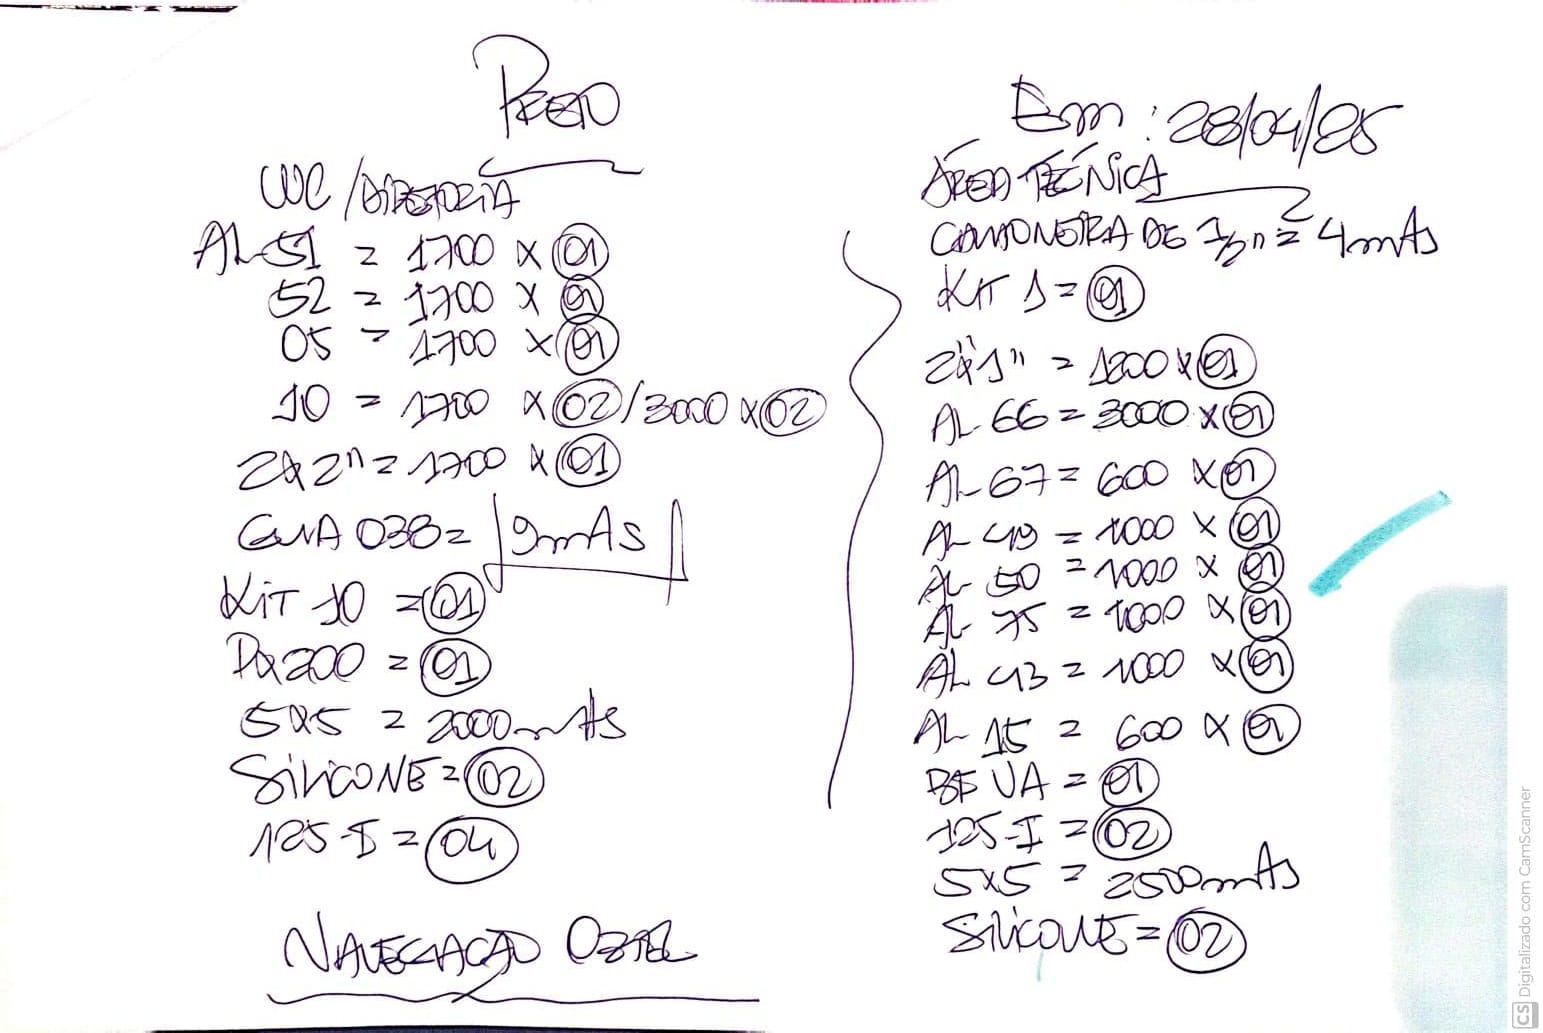 PRETO
WC/DIRETORIA
AL-51 = 1700 x 01
52 = 1700 x 01
05 = 1700 x 01
10 = 1700 x 02/3000 x 02
2x2" = 1700 x 01
GUIA 038 = 9mts
KIT 10 = 01
200 = 01
5x5 = 2000mts
SILICONE = 02
125-I = 04
NAVEGAÇÃO
Em: 28/04/25
ÁREA TÉCNICA
CANTONEIRA DE 1/2" = 4mts
KIT 1 = 01
2"x1" = 1200 x 01
AL 66 = 3000 x 01
AL 67 = 600 x 01
AL 49 = 1000 x 01
AL 50 = 1000 x 01
AL 75 = 1000 x 01
AL 43 = 1000 x 01
AL 15 = 600 x 01
UA = 01
125-I = 02
5x5 = 2500mts
SILICONE = 02
CS Digitalizado com CamScanner